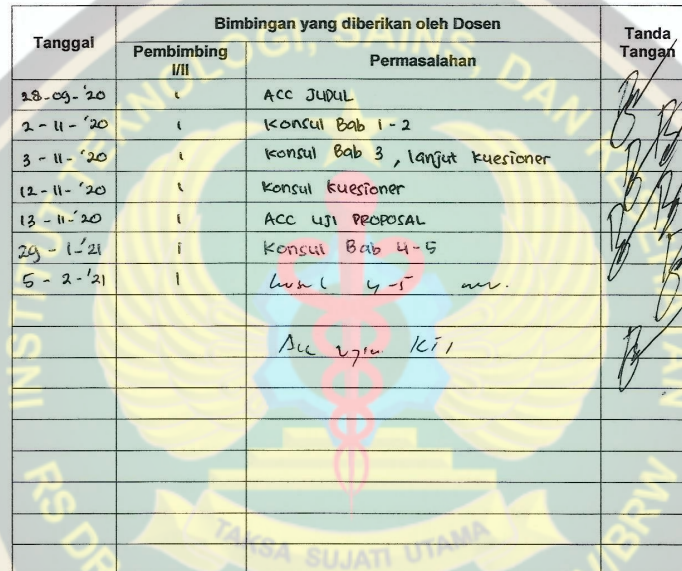 Tanggal
Bimbingan yang diberikan oleh Dosen
Tanda
Tangan
Pembimbing
I/II
Permasalahan
28-09-'20 i ACC JUDUL
2-11-'20 i Konsul Bab 1-2
3-11-'20 i Konsul Bab 3, lanjut kuesioner
12-11-'20 i Konsul kuesioner
13-11-'20 i ACC UJI PROPOSAL
29-1-'21 i Konsul Bab 4-5
5-2-'21 i 4-5
Acc KTI
INSTITUT TEKNOLOGI, SAINS, DAN KESEHATAN
RS DR
TAKSA SUJATI UTAMA